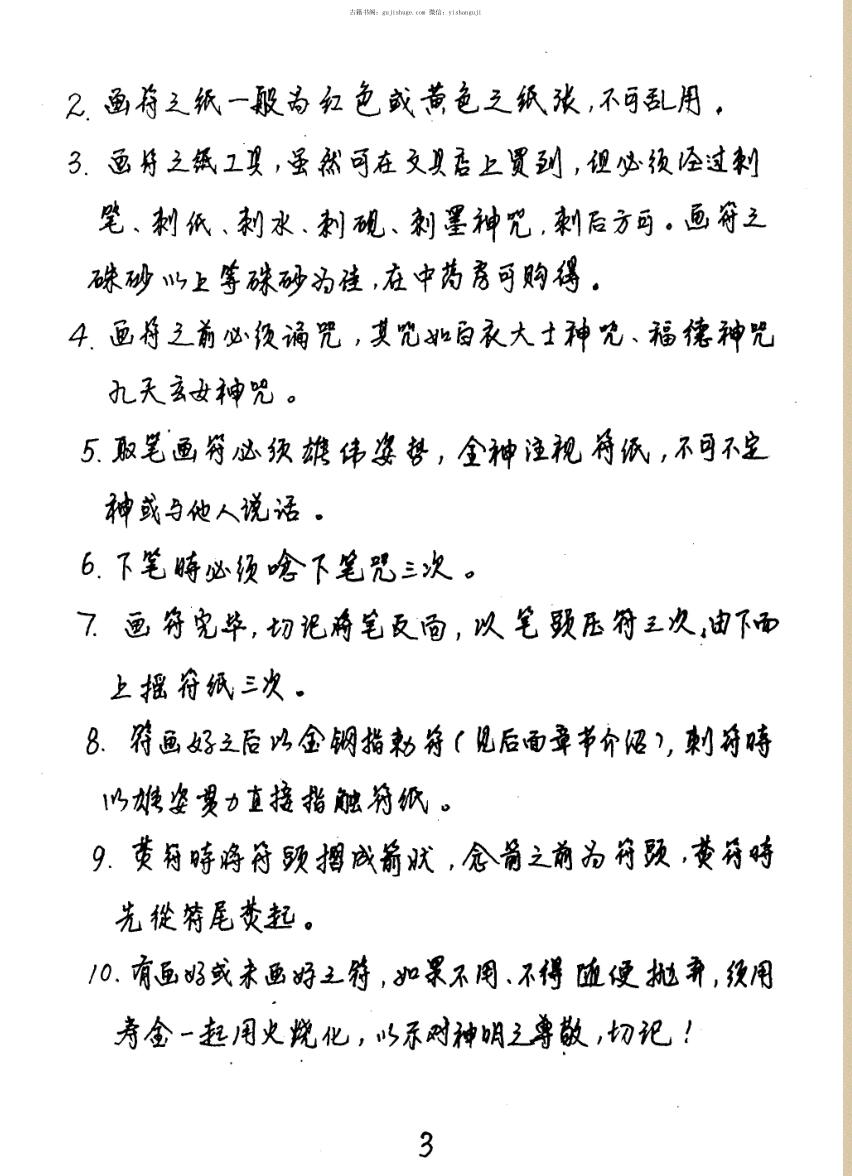 古籍书阁：gujishuge.com 微信：yishanguji
2. 画符之纸一般为红色或黄色之纸张,不可乱用。
3. 画符之纸工具,虽然可在文具店上買到,但必须经过剌
笔、剌纸、剌水、剌砚、剌墨神咒,剌后方可。画符之
硃砂以上等硃砂为佳,在中药房可购得。
4. 画符之前必须诵咒,其咒如白衣大士神咒、福德神咒
九天玄女神咒。
5. 取笔画符必须雄伟姿势,全神注视符纸,不可不定
神或与他人说话。
6. 下笔時必须唸下笔咒三次。
7. 画符完毕,切记将笔反面,以笔頭压符三次,由下而
上摇符纸三次。
8. 符画好之后以金钢指勅符(见后面章节介绍),剌符時
以雄姿贯力直接指触符纸。
9. 焚符時将符頭摺成箭状,念箭之前为符頭,焚符時
先從符尾焚起。
10. 有画好或未画好之符,如果不用、不得随便抛弃,须用
寿金一起用火烧化,以示对神明之尊敬,切记!
3